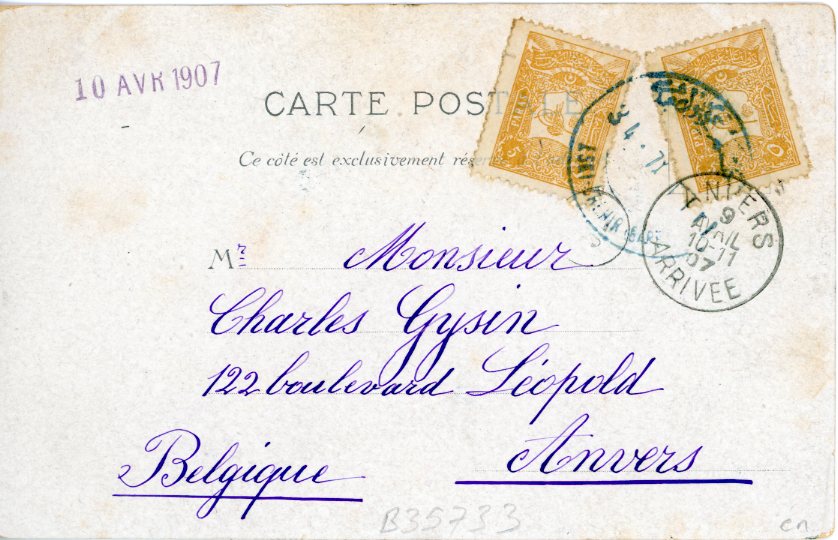 10 AVR 1907
CARTE POSTALE
Ce côté est exclusivement
5
5
3 4 . 11
ANVERS
9
AVRIL
10-11
07
ARRIVEE
Mr Monsieur
Charles Gysin
122 boulevard Léopold
Anvers
Belgique
B35733
en